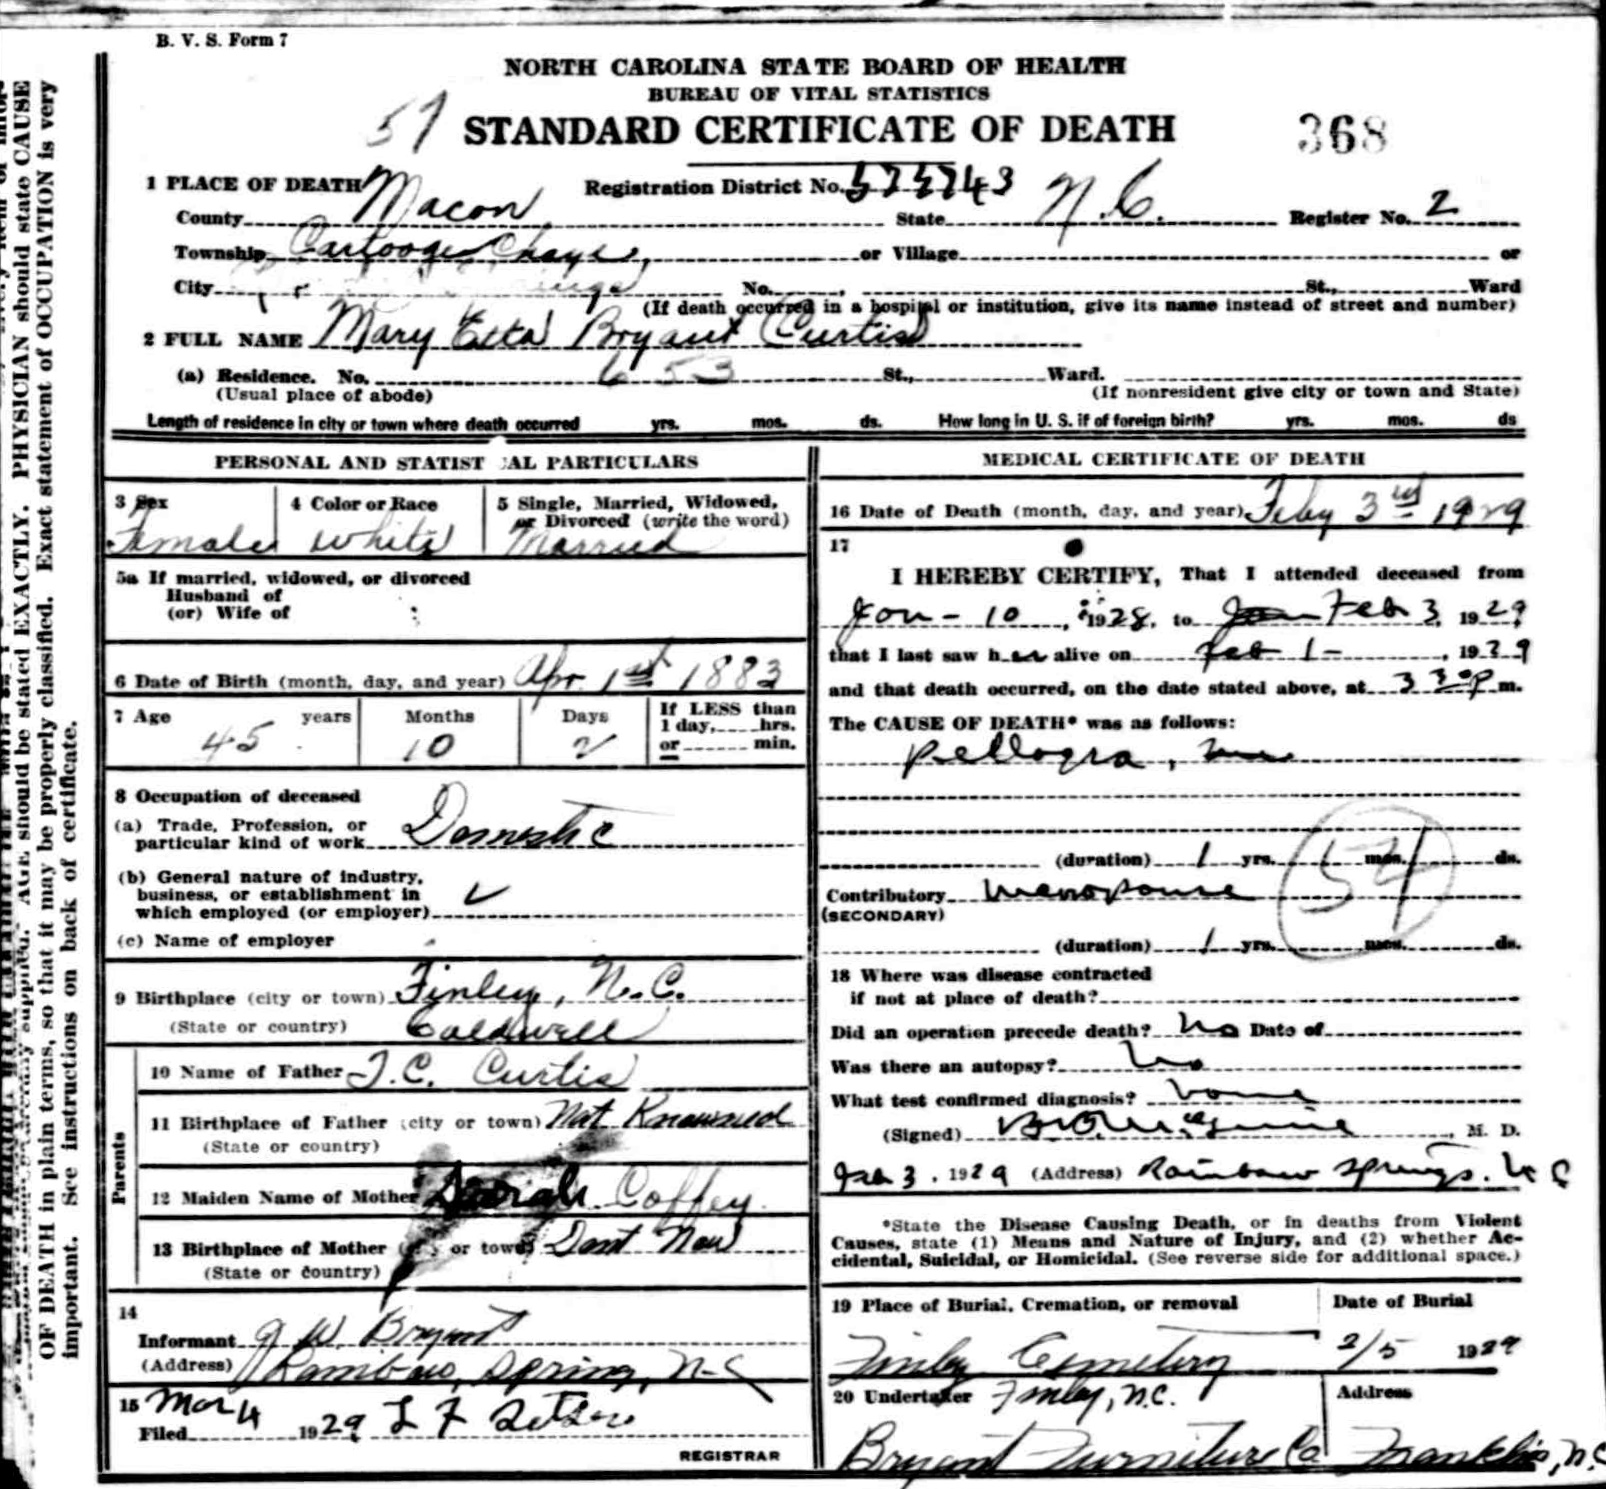 B. V. S. Form 7
NORTH CAROLINA STATE BOARD OF HEALTH
BUREAU OF VITAL STATISTICS
57 STANDARD CERTIFICATE OF DEATH 368
1 PLACE OF DEATH Registration District No.
County Macon State N.C. Register No. 2
Township Cartoogechaye, or Village or
City No. , St., Ward
(If death occurred in a hospital or institution, give its name instead of street and number)
2 FULL NAME Mary Etta Bryant Curtis
(a) Residence. No. 653 St., Ward.
(Usual place of abode) (If nonresident give city or town and State)
Length of residence in city or town where death occurred yrs. mos. ds. How long in U. S. if of foreign birth? yrs. mos. ds
PERSONAL AND STATISTICAL PARTICULARS
3 Sex 4 Color or Race 5 Single, Married, Widowed,
or Divorced (write the word)
Female White Married
5a If married, widowed, or divorced
Husband of
(or) Wife of
6 Date of Birth (month, day, and year) Apr. 1st 1883
7 Age years Months Days If LESS than
1 day, hrs.
45 10 2 or min.
8 Occupation of deceased
(a) Trade, Profession, or
particular kind of work Domestic
(b) General nature of industry,
business, or establishment in
which employed (or employer)
(c) Name of employer
9 Birthplace (city or town) Finley, N.C.
(State or country) Caldwell
Parents
10 Name of Father J.C. Curtis
11 Birthplace of Father (city or town) Not Knowned
(State or country)
12 Maiden Name of Mother Coffey
13 Birthplace of Mother or town) Dont Now
(State or country)
14
Informant J W. Bryant
(Address) Rainbow Spring, N-C
15 Mar 4
Filed 1929 L F
REGISTRAR
MEDICAL CERTIFICATE OF DEATH
16 Date of Death (month, day, and year) Feby 3rd 1929
17
I HEREBY CERTIFY, That I attended deceased from
Jan - 10, 1928, to Feb 3, 1929
that I last saw her alive on Feb 1 - , 1929
and that death occurred, on the date stated above, at 3 30 P m.
The CAUSE OF DEATH* was as follows:
Pellagra,
(duration) 1 yrs. mos. ds.
54
Contributory Menopause
(SECONDARY)
(duration) 1 yrs. mos. ds.
18 Where was disease contracted
if not at place of death?
Did an operation precede death? No Date of
Was there an autopsy? No
What test confirmed diagnosis?
(Signed) M. D.
Feb 3, 1929 (Address) Rainbow Springs. N C
*State the Disease Causing Death, or in deaths from Violent
Causes, state (1) Means and Nature of Injury, and (2) whether Ac-
cidental, Suicidal, or Homicidal. (See reverse side for additional space.)
19 Place of Burial, Cremation, or removal Date of Burial
Finley Cemetery 2/5 1929
20 Undertaker Finley, N.C. Address
Bryant Furniture Co Franklin, N.C
should be stated EXACTLY. PHYSICIAN should state CAUSE
OF DEATH in plain terms, so that it may be properly classified. Exact statement of OCCUPATION is very
important. See instructions on back of certificate.